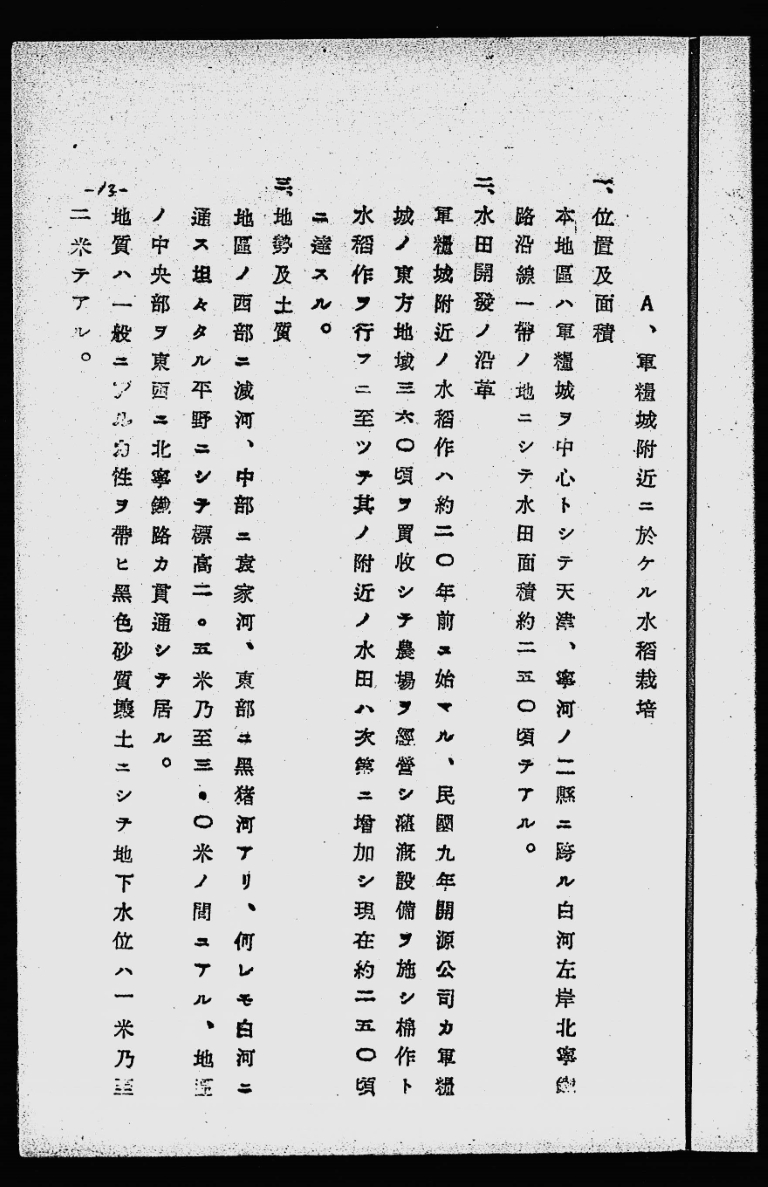 A、軍糧城附近ニ於ケル水稻栽培
一、位置及面積
本地區ハ軍糧城ヲ中心トシテ天津、寧河ノ二縣ニ跨ル白河左岸北寧鐵
路沿線一帶ノ地ニシテ水田面積約二五〇頃テアル。
二、水田開發ノ沿革
軍糧城附近ノ水稻作ハ約二〇年前ニ始マル、民國九年開源公司カ軍糧
城ノ東方地域三六〇頃ヲ買收シテ農場ヲ經營シ灌漑設備ヲ施シ棉作ト
水稻作ヲ行フニ至ツテ其ノ附近ノ水田ハ次第ニ增加シ現在約二五〇頃
ニ達スル。
三、地勢及土質
地區ノ西部ニ減河、中部ニ袁家河、東部ニ黑猪河アリ、何レモ白河ニ
通ス坦々タル平野ニシテ標高二。五米乃至三.〇米ノ間ニアル、地區
ノ中央部ヲ東西ニ北寧鐵路カ貫通シテ居ル。
地質ハ一般ニアルカ性ヲ帶ヒ黑色砂質壤土ニシテ地下水位ハ一米乃至
二米テアル。
-13-